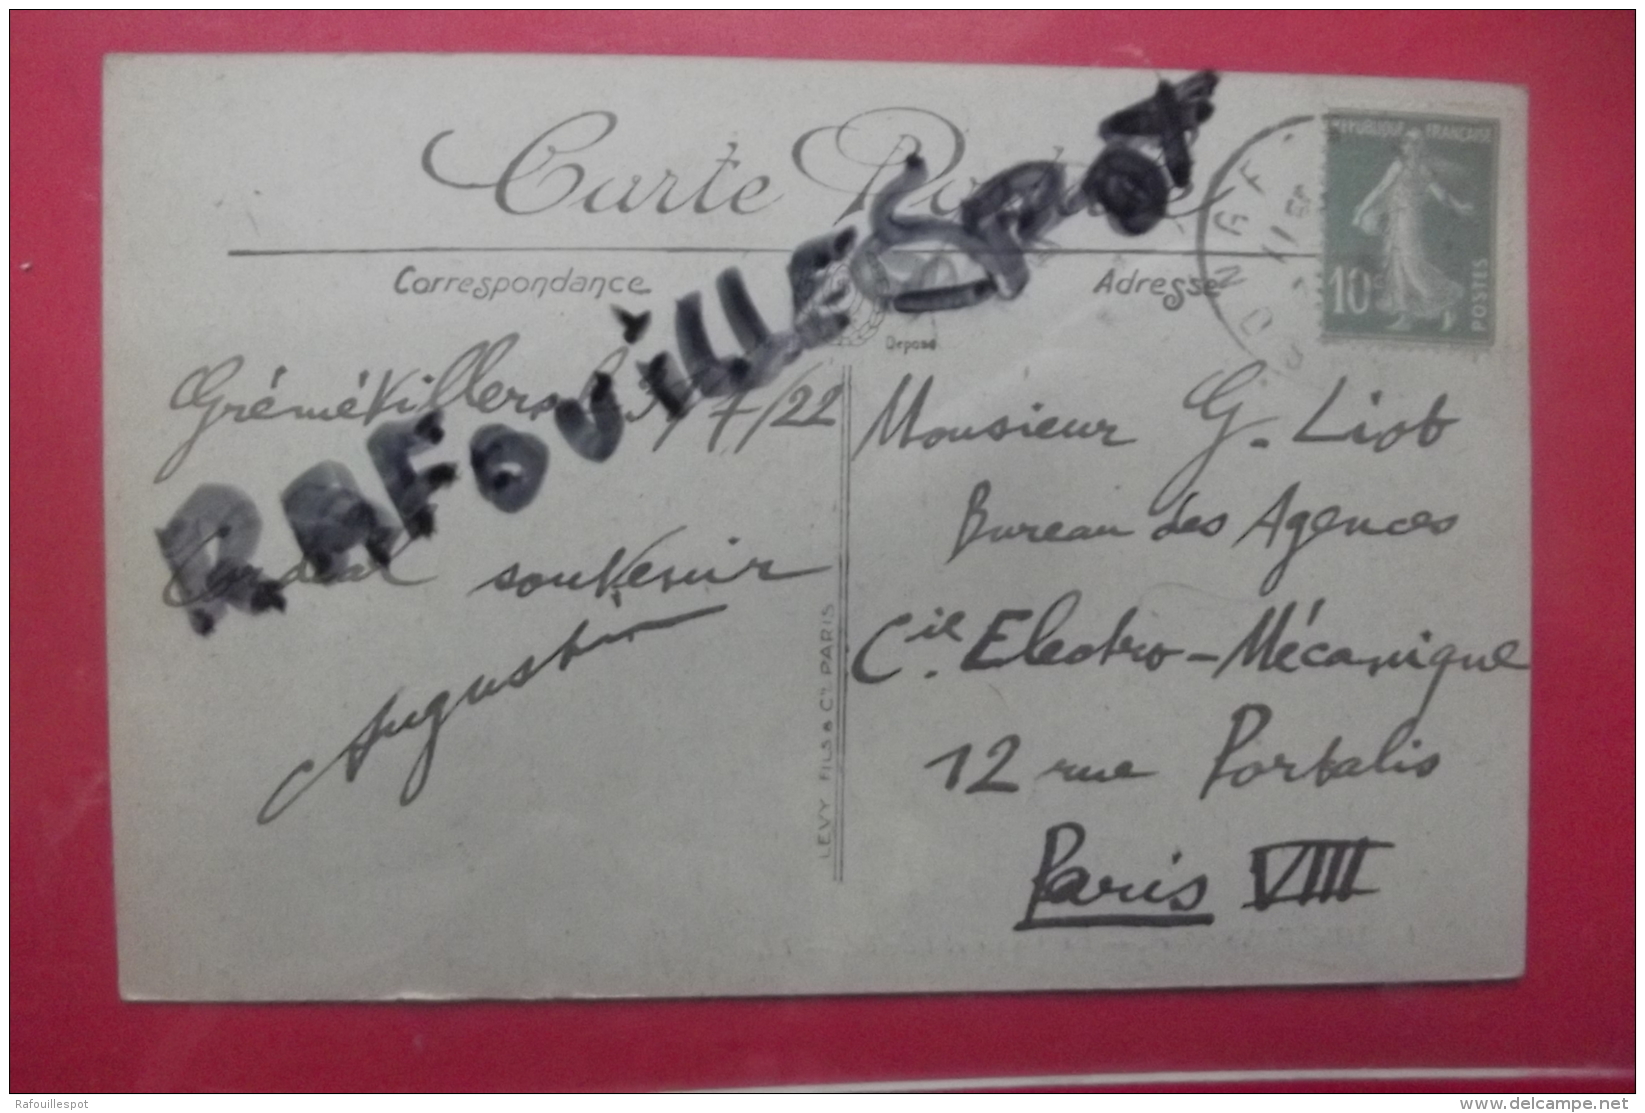 Carte Postale
RAFOUILLESPOT
RÉPUBLIQUE FRANÇAISE
10c
POSTES
Correspondance
Adresse
Déposé
Grémévillers 7/22
Cordial souvenir
Augustin
LEVY FILS & Cie PARIS
Monsieur G. Liot
Bureau des Agences
Cie. Electro-Mécanique
12 rue Portalis
Paris VIII
Rafouillespot
www.delcampe.net